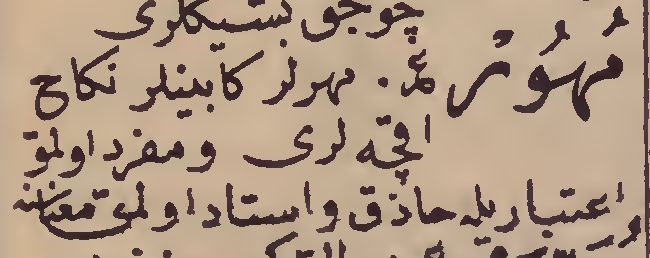 چوجق بشیکلری
مُهُوْر عر. مهرلر کابینلر نکاح
اقچه لری ومفرد اولمق
اعتباریله حاذق واستاد اولمق معناسنه